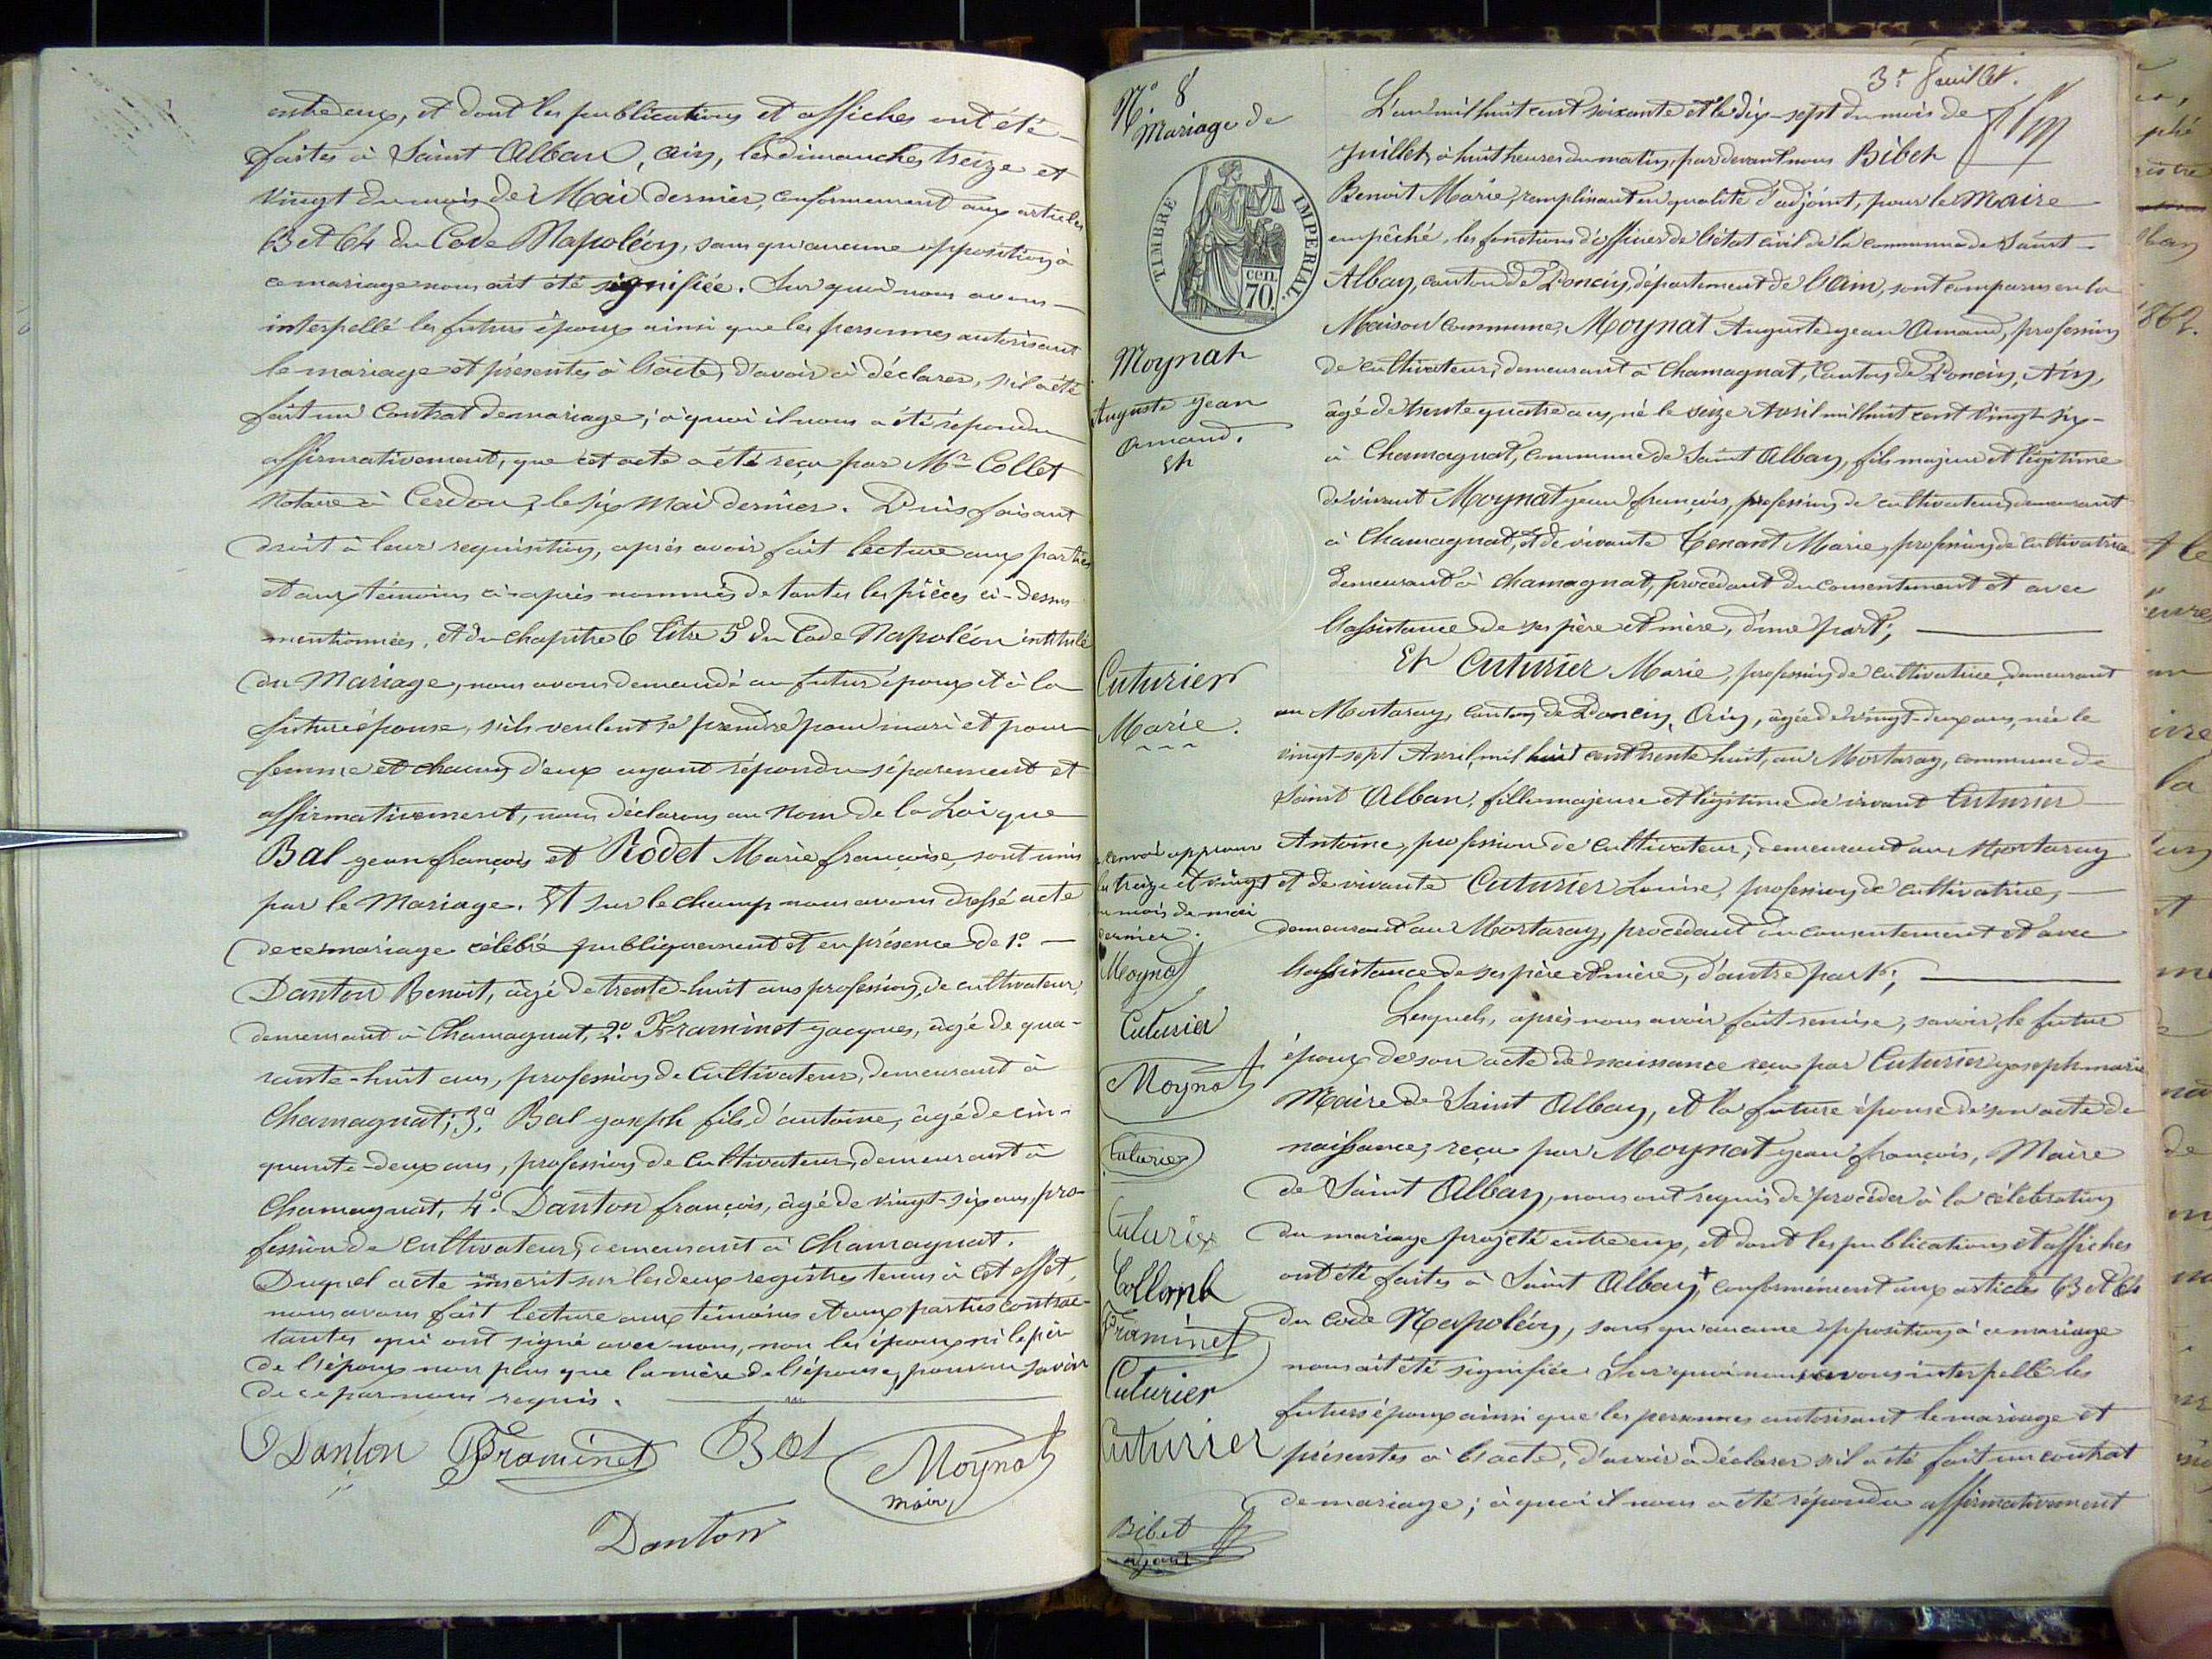 entre eux, et dont les publications et affiches ont été
faites à Saint Alban, ain, les dimanches treize et
vingt du mois de Mai dernier, conformement aux articles
63 et 64 du Code Napoléon, sans qu'aucune opposition à
ce mariage nous ait été signifiée. Sur quoi nous avons
interpellé les futurs époux ainsi que les personnes autorisant
le mariage et présentes à l'acte, d'avoir à déclarer, s'il a été
fait un Contrat de mariage; à quoi il nous a été répondu
affirmativement, que cet acte a été reçu par Mr. Collet
Notaire à Cerdon, le six Mai dernier. Puis faisant
droit à leur requisition, après avoir fait lecture aux parties
et aux témoins ci-après nommés de toutes les pièces ci-dessus
mentionnées, et du chapitre 6 titre 5 du Code Napoléon intitulé
du Mariage, nous avons demandé au futur époux et à la
future épouse, s'ils veulent se prendre pour mari et pour
femme et chacun d'eux ayant répondu séparement et
affirmativement, nous déclarons au Nom de la Loi que
Bal jean françois et Rodet Marie françoise, sont unis
par le Mariage. Et sur le champ nous avons dressé acte
de ce mariage célébré publiquement et en présence de 1o.
Danton Benoit, âgé de trente-huit ans profession de cultivateur,
demeurant à Chamagnat, 2o. Framinet jacques, âgé de qua-
rante-huit ans, profession de Cultivateur, demeurant à
Chamagnat; 3o. Bal joseph fils d'antoine, âgé de cin-
quante-deux ans, profession de Cultivateur, demeurant à
Chamagnat, 4o. Danton françois, âgé de vingt-six ans, pro-
fession de cultivateur, demeurant à Chamagnat.
Duquel acte inscrit sur les deux registres tenus à cet effet,
nous avons fait lecture aux témoins et aux parties contrac-
tantes qui ont signé avec nous, non les époux ni le père
de l'époux non plus que la mère de l'épouse, pour ne savoir
de ce par nous requis.
Danton Framinet Bal Moynat
maire
Danton
No. 8
Mariage de
TIMBRE IMPERIAL
cen.
70
Moynat
Auguste jean
Armand.
Et
Cuturier
Marie.
renvoi approuvé
les treize et vingt
du mois de mai
dernier.
Moynat
Cuturier
Moynat
Cuturier
Cuturier
Collomb
Framinet
Cuturier
Cuturier
Bibet
adjoint
3e. feuillet.
L'an mil huit cent soixante et le dix-sept du mois de
Juillet, à huit heures du matin, par devant nous Bibet
Benoit Marie, remplissant en qualité d'adjoint, pour le Maire
empêché, les fonctions d'officier de l'état civil de la commune de Saint-
Alban, canton de Poncin, département de l'Ain, sont comparus en la
Maison Commune, Moynat Auguste jean Armand, profession
de cultivateur, demeurant à Chamagnat, Canton de Poncin, Ain,
âgé de trente quatre ans, né le seize Avril mil huit cent vingt-six
à Chamagnat, commune de Saint Alban, fils majeur et légitime
de vivant Moynat jean françois, profession de cultivateur, demeurant
à Chamagnat, et de vivante Tenant Marie, profession de Cultivatrice
demeurant à Chamagnat, procédant du consentement et avec
l'assistance de ses père et mère, d'une part;
Et Cuturier Marie, profession de cultivatrice, demeurant
au Mortaray, canton de Poncin, Ain, âgée de vingt-deux ans, née le
vingt-sept Avril, mil huit cent trente huit, au Mortaray, commune de
Saint Alban, fille majeure et légitime de vivant Cuturier
Antoine, profession de cultivateur, demeurant au Mortaray
et de vivante Cuturier Louise, profession de cultivatrice,
demeurant au Mortaray, procédant du consentement et avec
l'assistance de ses père et mère, d'autre part;
Lesquels, après nous avoir fait remise, savoir, le futur
époux de son acte de naissance reçu par Cuturier joseph marie
Maire de Saint Alban, et la future épouse de son acte de
naissance, reçu par Moynat jean françois, Maire
de Saint Alban, nous ont requis de procéder à la célébration
du mariage projeté entre eux, et dont les publications et affiches
ont été faites à Saint Alban + conformément aux articles 63 et 64
du code Napoléon, sans qu'aucune opposition à ce mariage
nous ait été signifiée. Sur quoi nous avons interpellé les
futurs époux ainsi que les personnes autorisant le mariage et
présentes à l'acte, d'avoir à déclarer s'il a été fait un contrat
de mariage; à quoi il nous a été répondu affirmativement